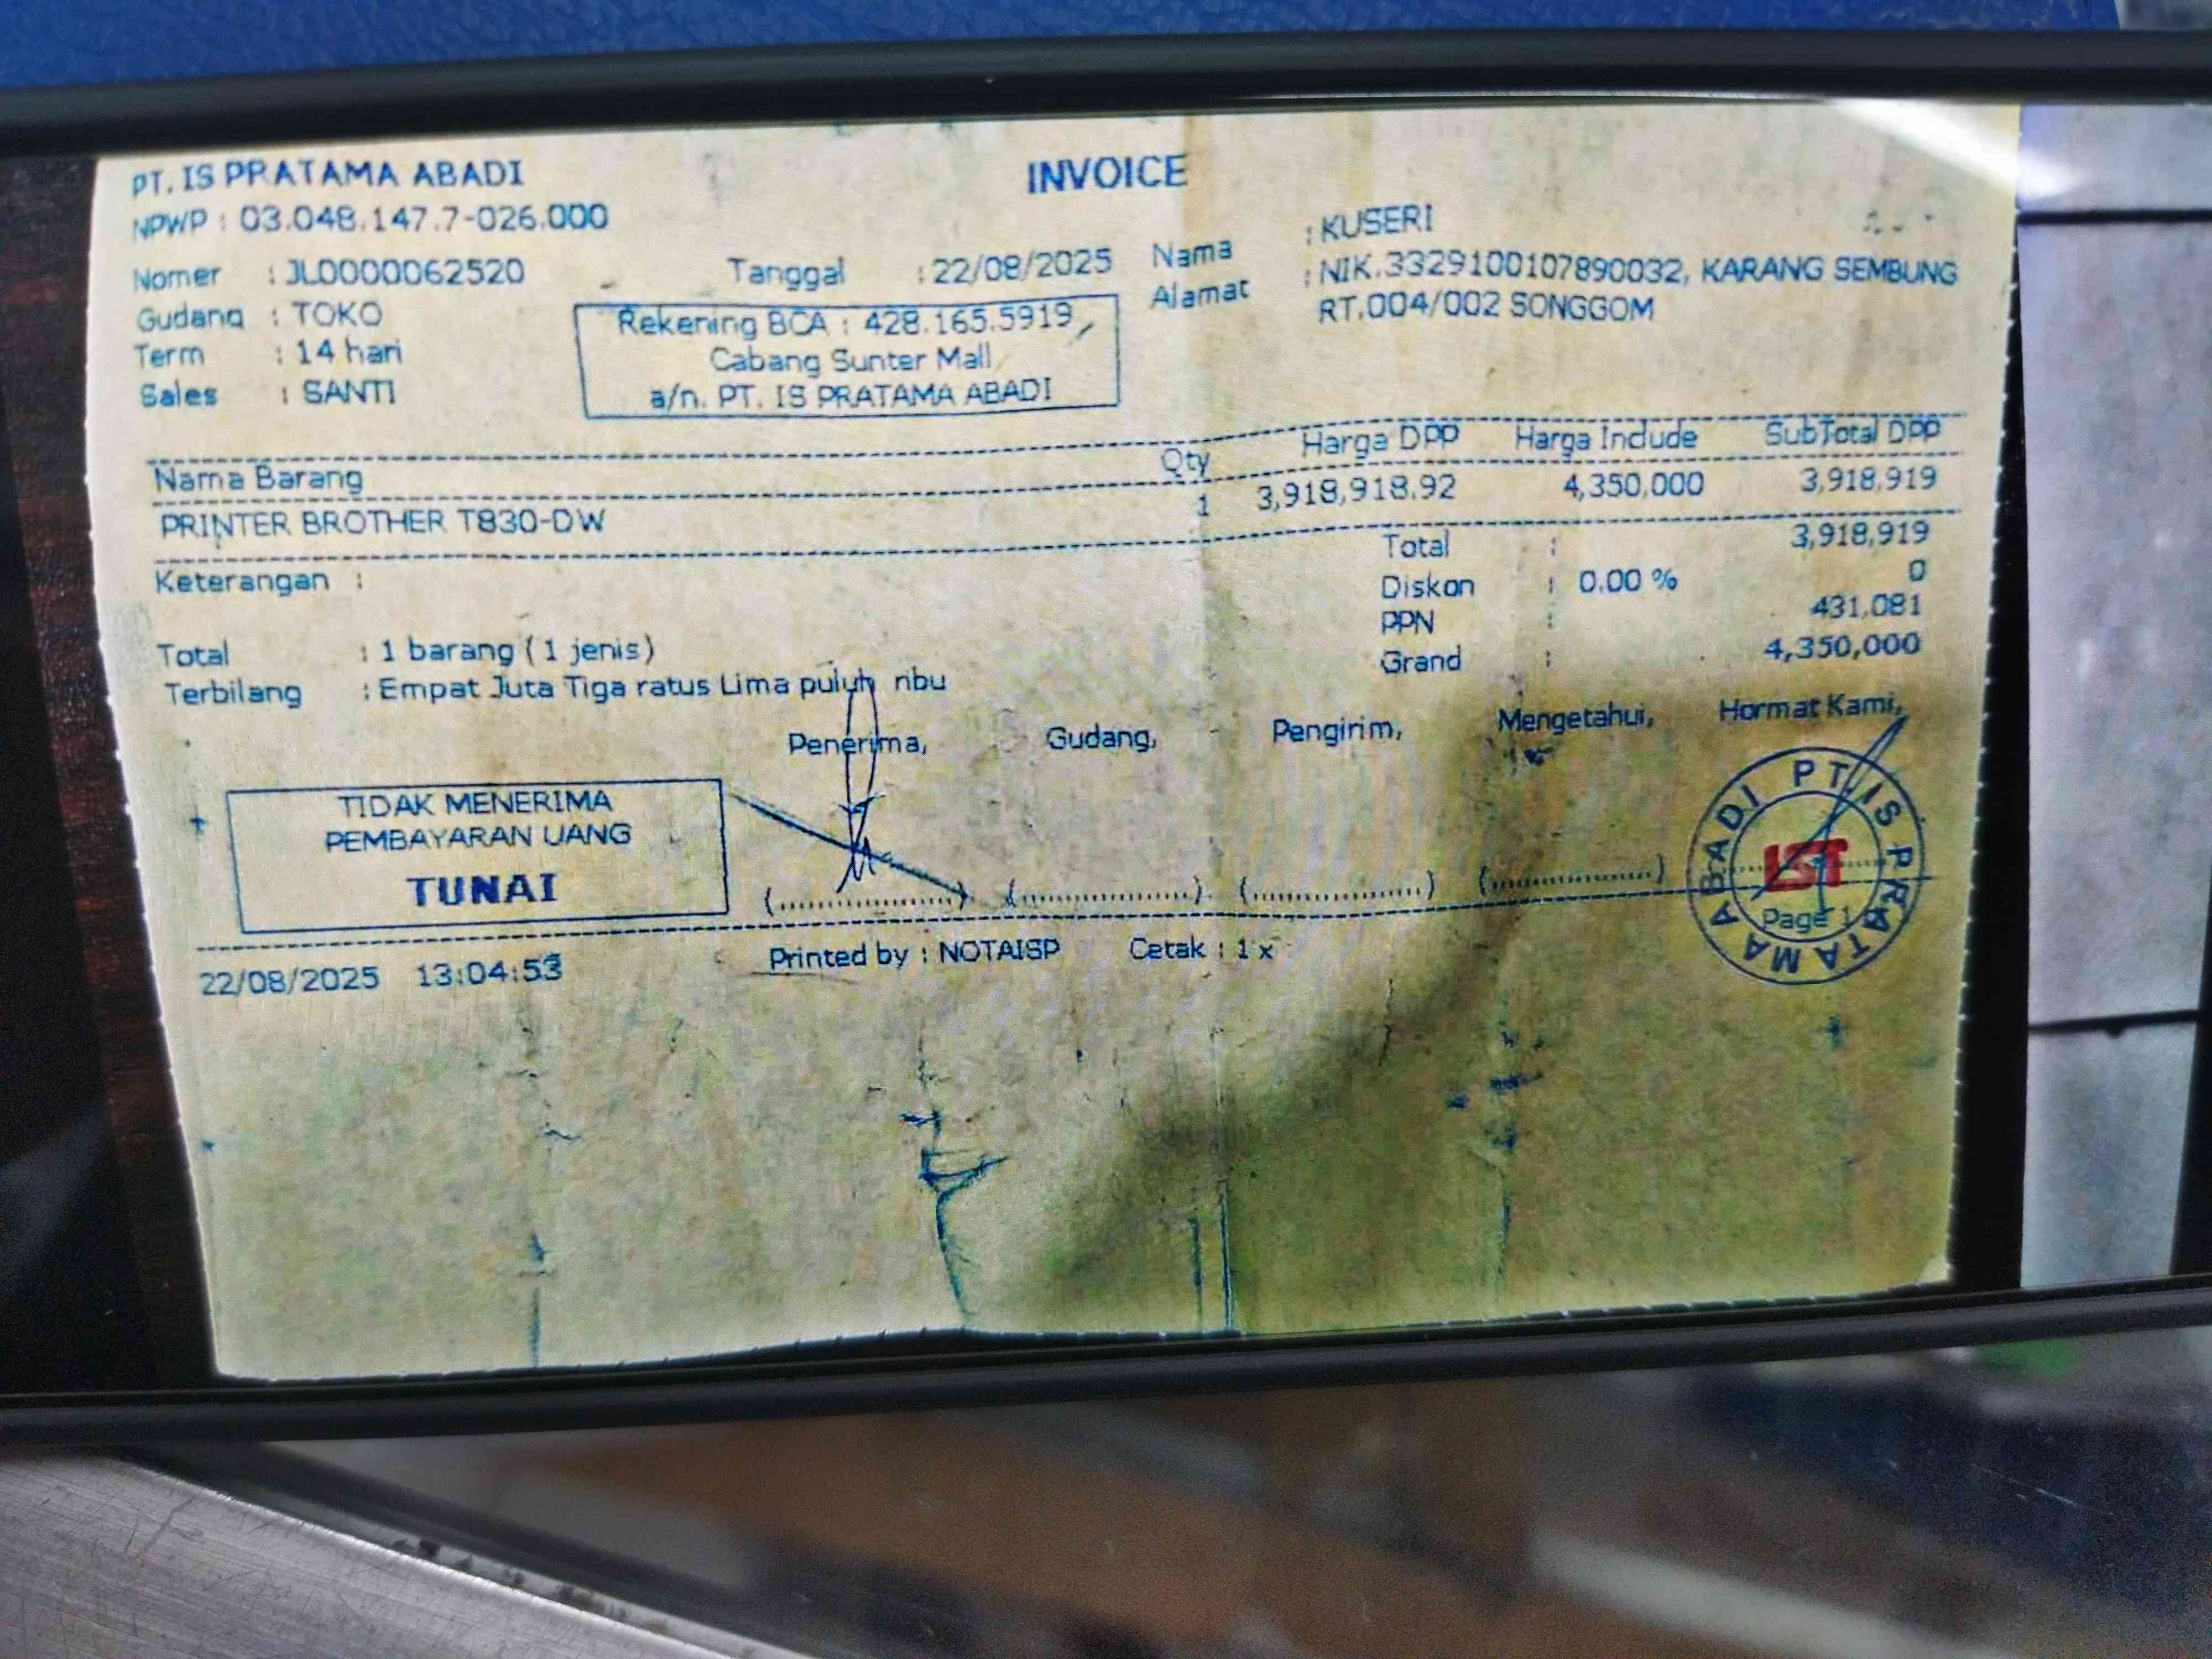 PT. IS PRATAMA ABADI
INVOICE
NPWP : 03.048.147.7-026.000
Nomer : JL0000062520
Tanggal : 22/08/2025
Nama : KUSERI
Alamat : NIK.3329100107890032, KARANG SEMBUNG
RT.004/002 SONGGOM
Gudang : TOKO
Term : 14 hari
Sales : SANTI
Rekening BCA : 428.165.5919
Cabang Sunter Mall
a/n. PT. IS PRATAMA ABADI
Nama Barang Qty Harga DPP Harga Include SubTotal DPP
PRINTER BROTHER T830-DW 1 3,918,918.92 4,350,000 3,918,919
Keterangan :
Total : 3,918,919
Diskon : 0.00 % 0
PPN : 431,081
Grand : 4,350,000
Total : 1 barang ( 1 jenis )
Terbilang : Empat Juta Tiga ratus Lima puluh ribu
Penerima, Gudang, Pengirim, Mengetahui, Hormat Kami,
TIDAK MENERIMA
PEMBAYARAN UANG
TUNAI
PT. IS PRATAMA ABADI
Page 1
22/08/2025 13:04:53 Printed by : NOTAISP Cetak : 1 x